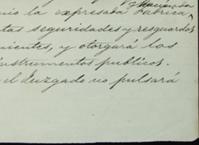 y Hacienda
nio la expresada Fabrica
tas seguridades y resguardos
nientes, y otorgará los
instrumentos publicos.
el Juzgado no pulsará